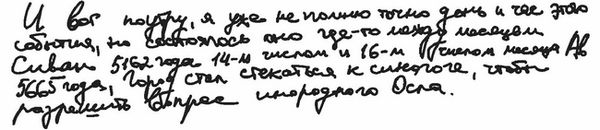 И вот поутру, я уже не помню точно день и час этого
события, но состоялось оно где-то между месяцем
Сиван 5162 года 14-м числом и 16-м числом месяца Ав
5665 года, город стал стекаться к синагоге, чтобы
разрешить вопрос инородного Осла.